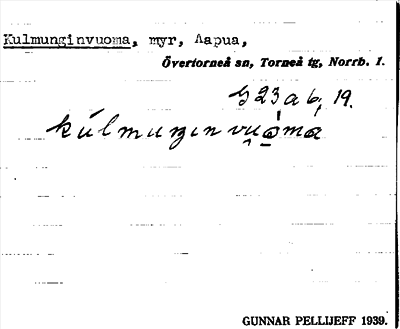 Kulmunginvuoma, myr, Aapua,
Övertorneå sn, Torneå tg, Norrb. l.
G 23 a b, 19.
kúlmuŋinvu̯o̱ma
GUNNAR PELLIJEFF 1939.